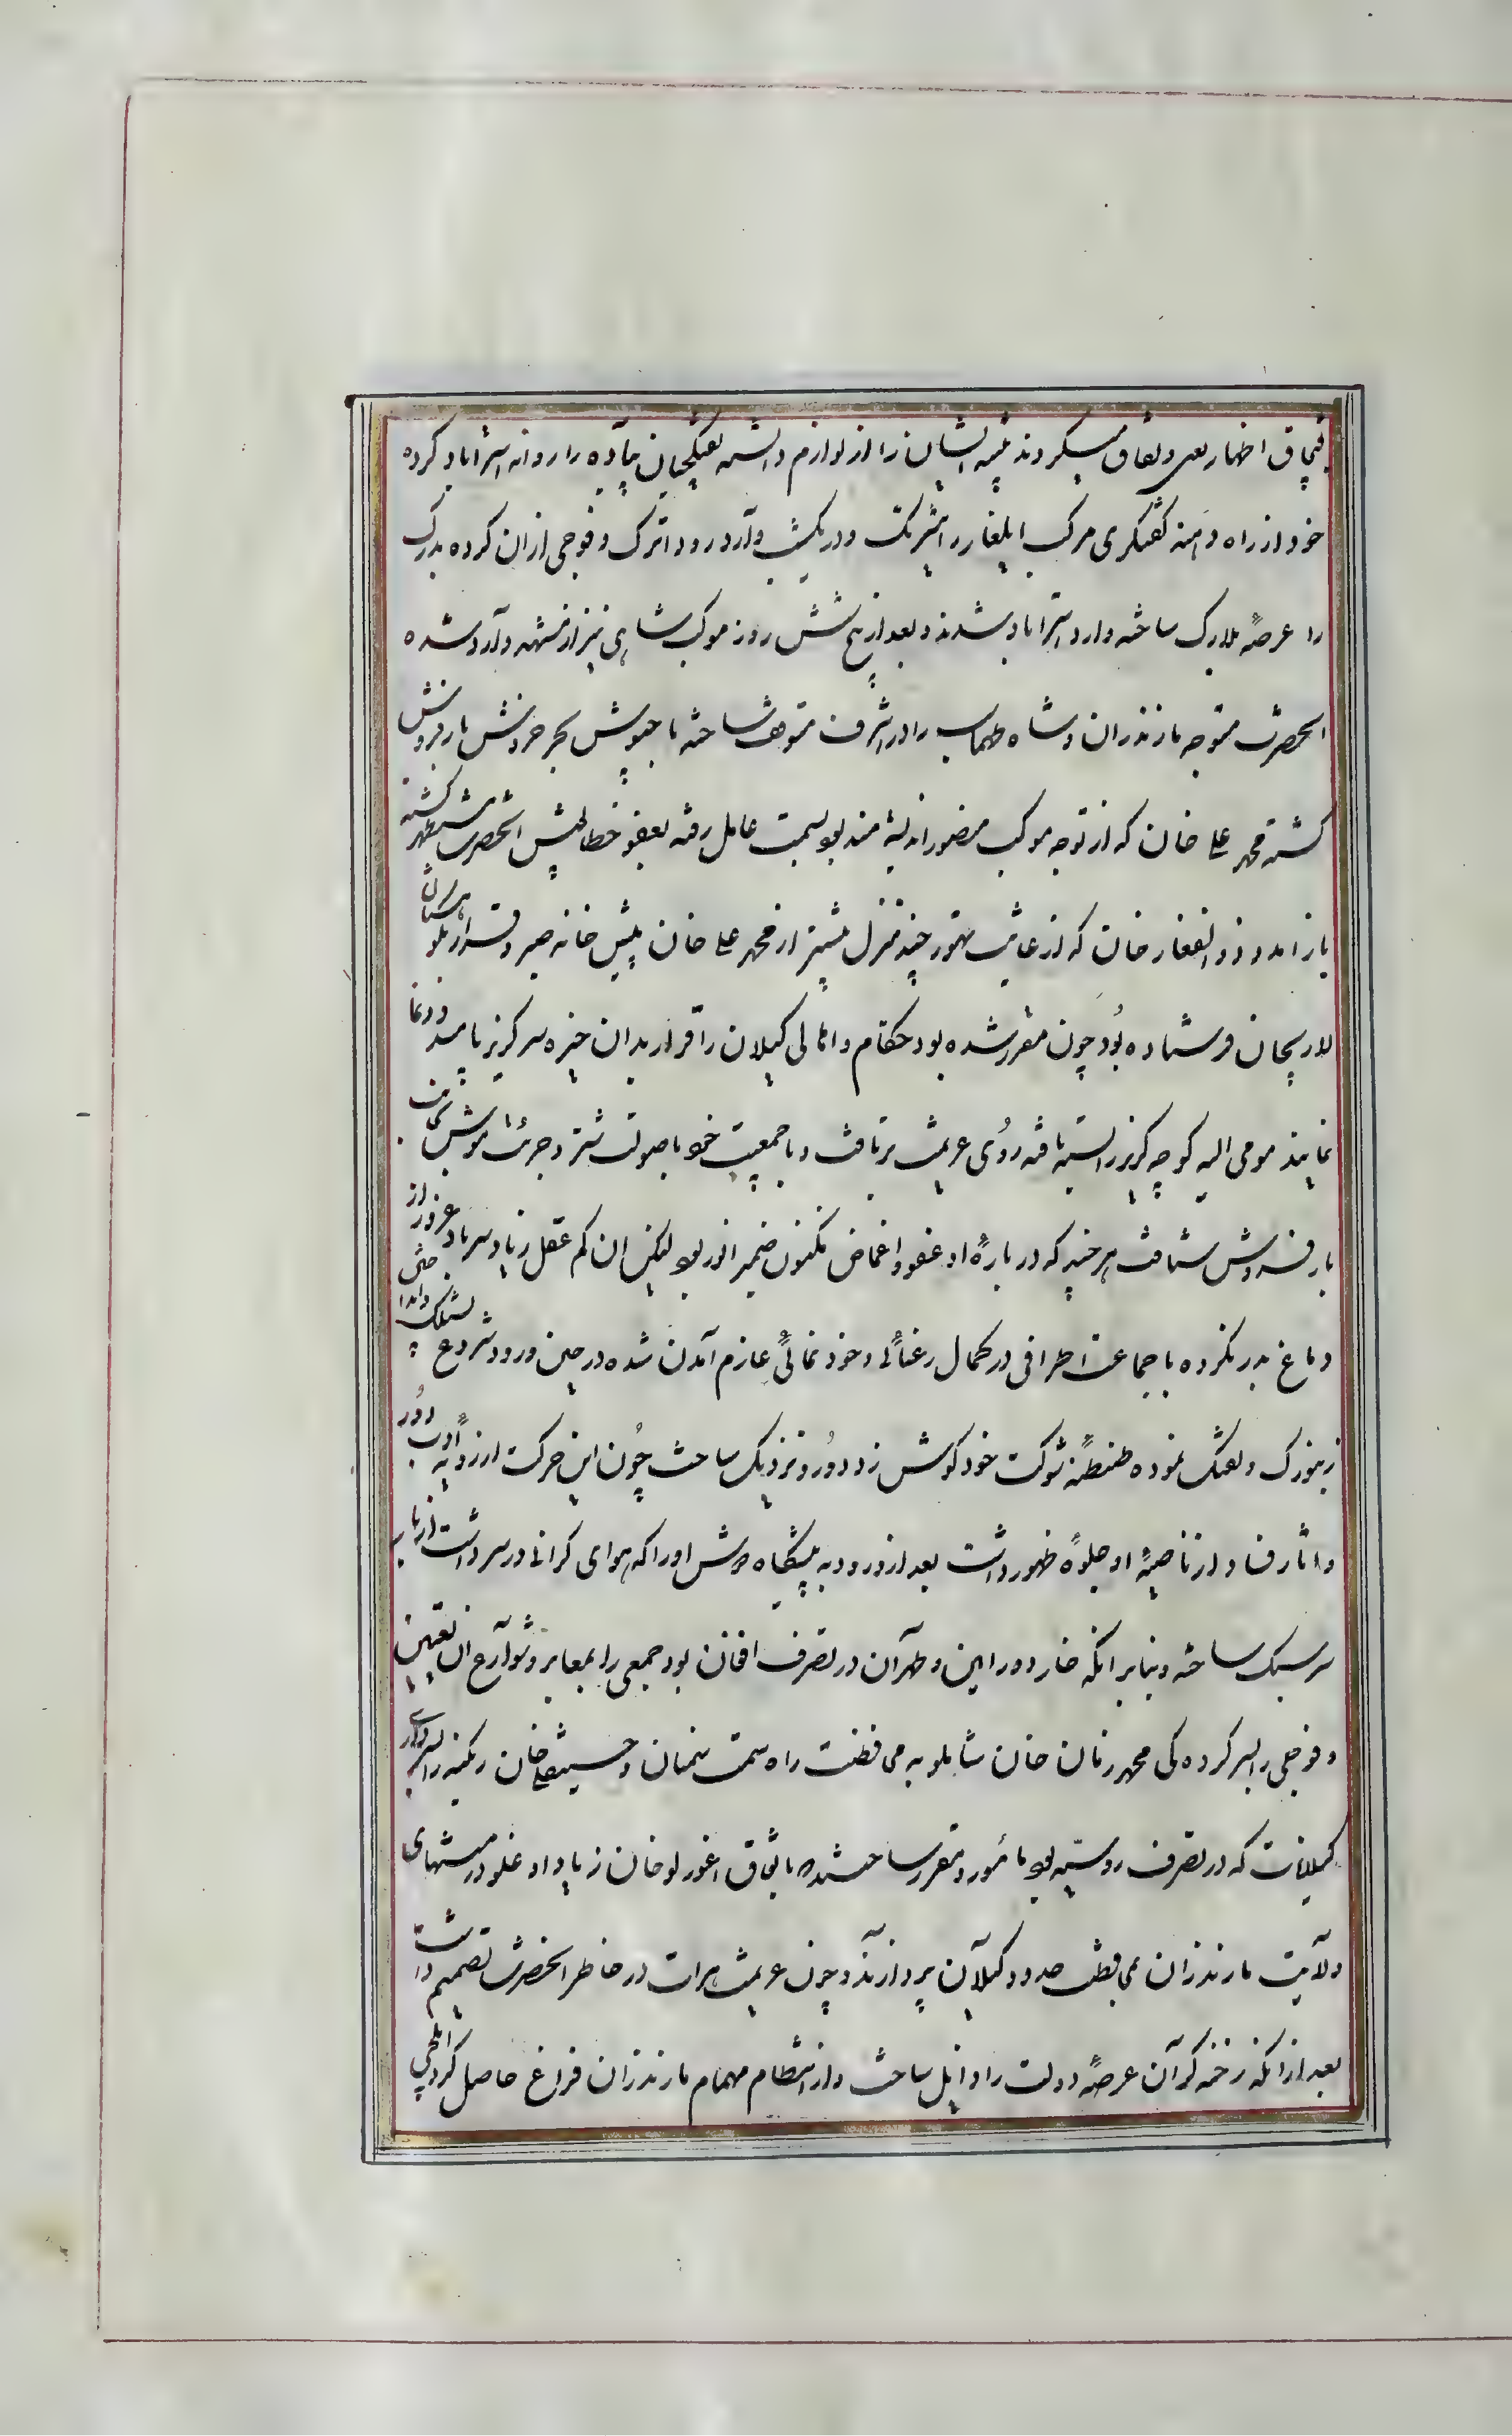 قپچاق اظهار بغی و نفاق میکردند تنبیه ایشان را از لوازم دانسته تفنگچیان پیاده را روانه استراباد کرده
خود از راه دامنه کفتگری مرکب ایلغار را تیزتک و در یکشب وارد رود اترک و فوجی از ان کرده بدرک
را عرصهٔ بلارک ساخته وارد استراباد شدند و بعد از پنج شش روز موکب شاهی نیز از مشهد وارد شده
انحضرت متوجه مازندران و شاه طهماسب را در اشرف متوقف ساخته با جیوش بحر خروش بارفروش
کشته محمد علی خان که از توجه موکب منصور اندیشه مند بود بسمت عامل رفته بعفو خطابخش انحضرت مستظهر کشته
باز امد و ذوالفقار خان که از غایت تهور چند منزل پیشتر از محمد علی خان پیش خانه صبر و قرار بلورستاق
لاریجان فرستاده بود چون مقرر شده بود حکام و اهالی کیلان راه فرار بر ان خیره سر کریزپا مسدود نما
نمایند مومی الیه کوچه کریز را بسته یافته روی عزیمت برتافت و با جمعیت خود با صولت شتر و جرئت موش بجانب
بارفروش شتافت هر چند که در بارهٔ او عفو و اغماض مکنون ضمیر انور بود لیکن ان کم عقل زیاد سر باد غرور از
دماغ بدر نکرده با جماعت اطرافی در کمال رعنائی و خود نمائی عازم آمدن شده در حین ورود شروع بشلیک
زنبورک و تفنک نموده طنطنهٔ شوکت خود کوش زد دور و نزدیک ساخت چون این حرکت از رویهٔ ادب دور
و اثار فساد از ناصیهٔ او جلوهٔ ظهور داشت بعد از ورود به پیشگاه دوش او را که هوای کرانی در سر داشت از بار
سر سبک ساخته و بنابر انکه خار و ورامین و طهران در تصرف افغان بود جمعی را بمعابر و شوارع ان تعیین
و فوجی را بسرکرده کی محمد زمان خان شاملو به محافظت راه سمت سمنان و حسینقلی خان زنگنه را بسرداری
کیلانات که در تصرف روسیه بود مامور و مقرر ساختند که باتفاق اغورلو خان زیاد اوغلو در منتهای
ولایت مازندران بمحافظت حدود کیلان پردازند و چون عزیمت هرات در خاطر انحضرت تصمیم داشت
بعد از انکه رخنه کران عرصهٔ دولت را زایل ساخت و از انتظام مهمام مازندران فراغ حاصل کرد ایلچی